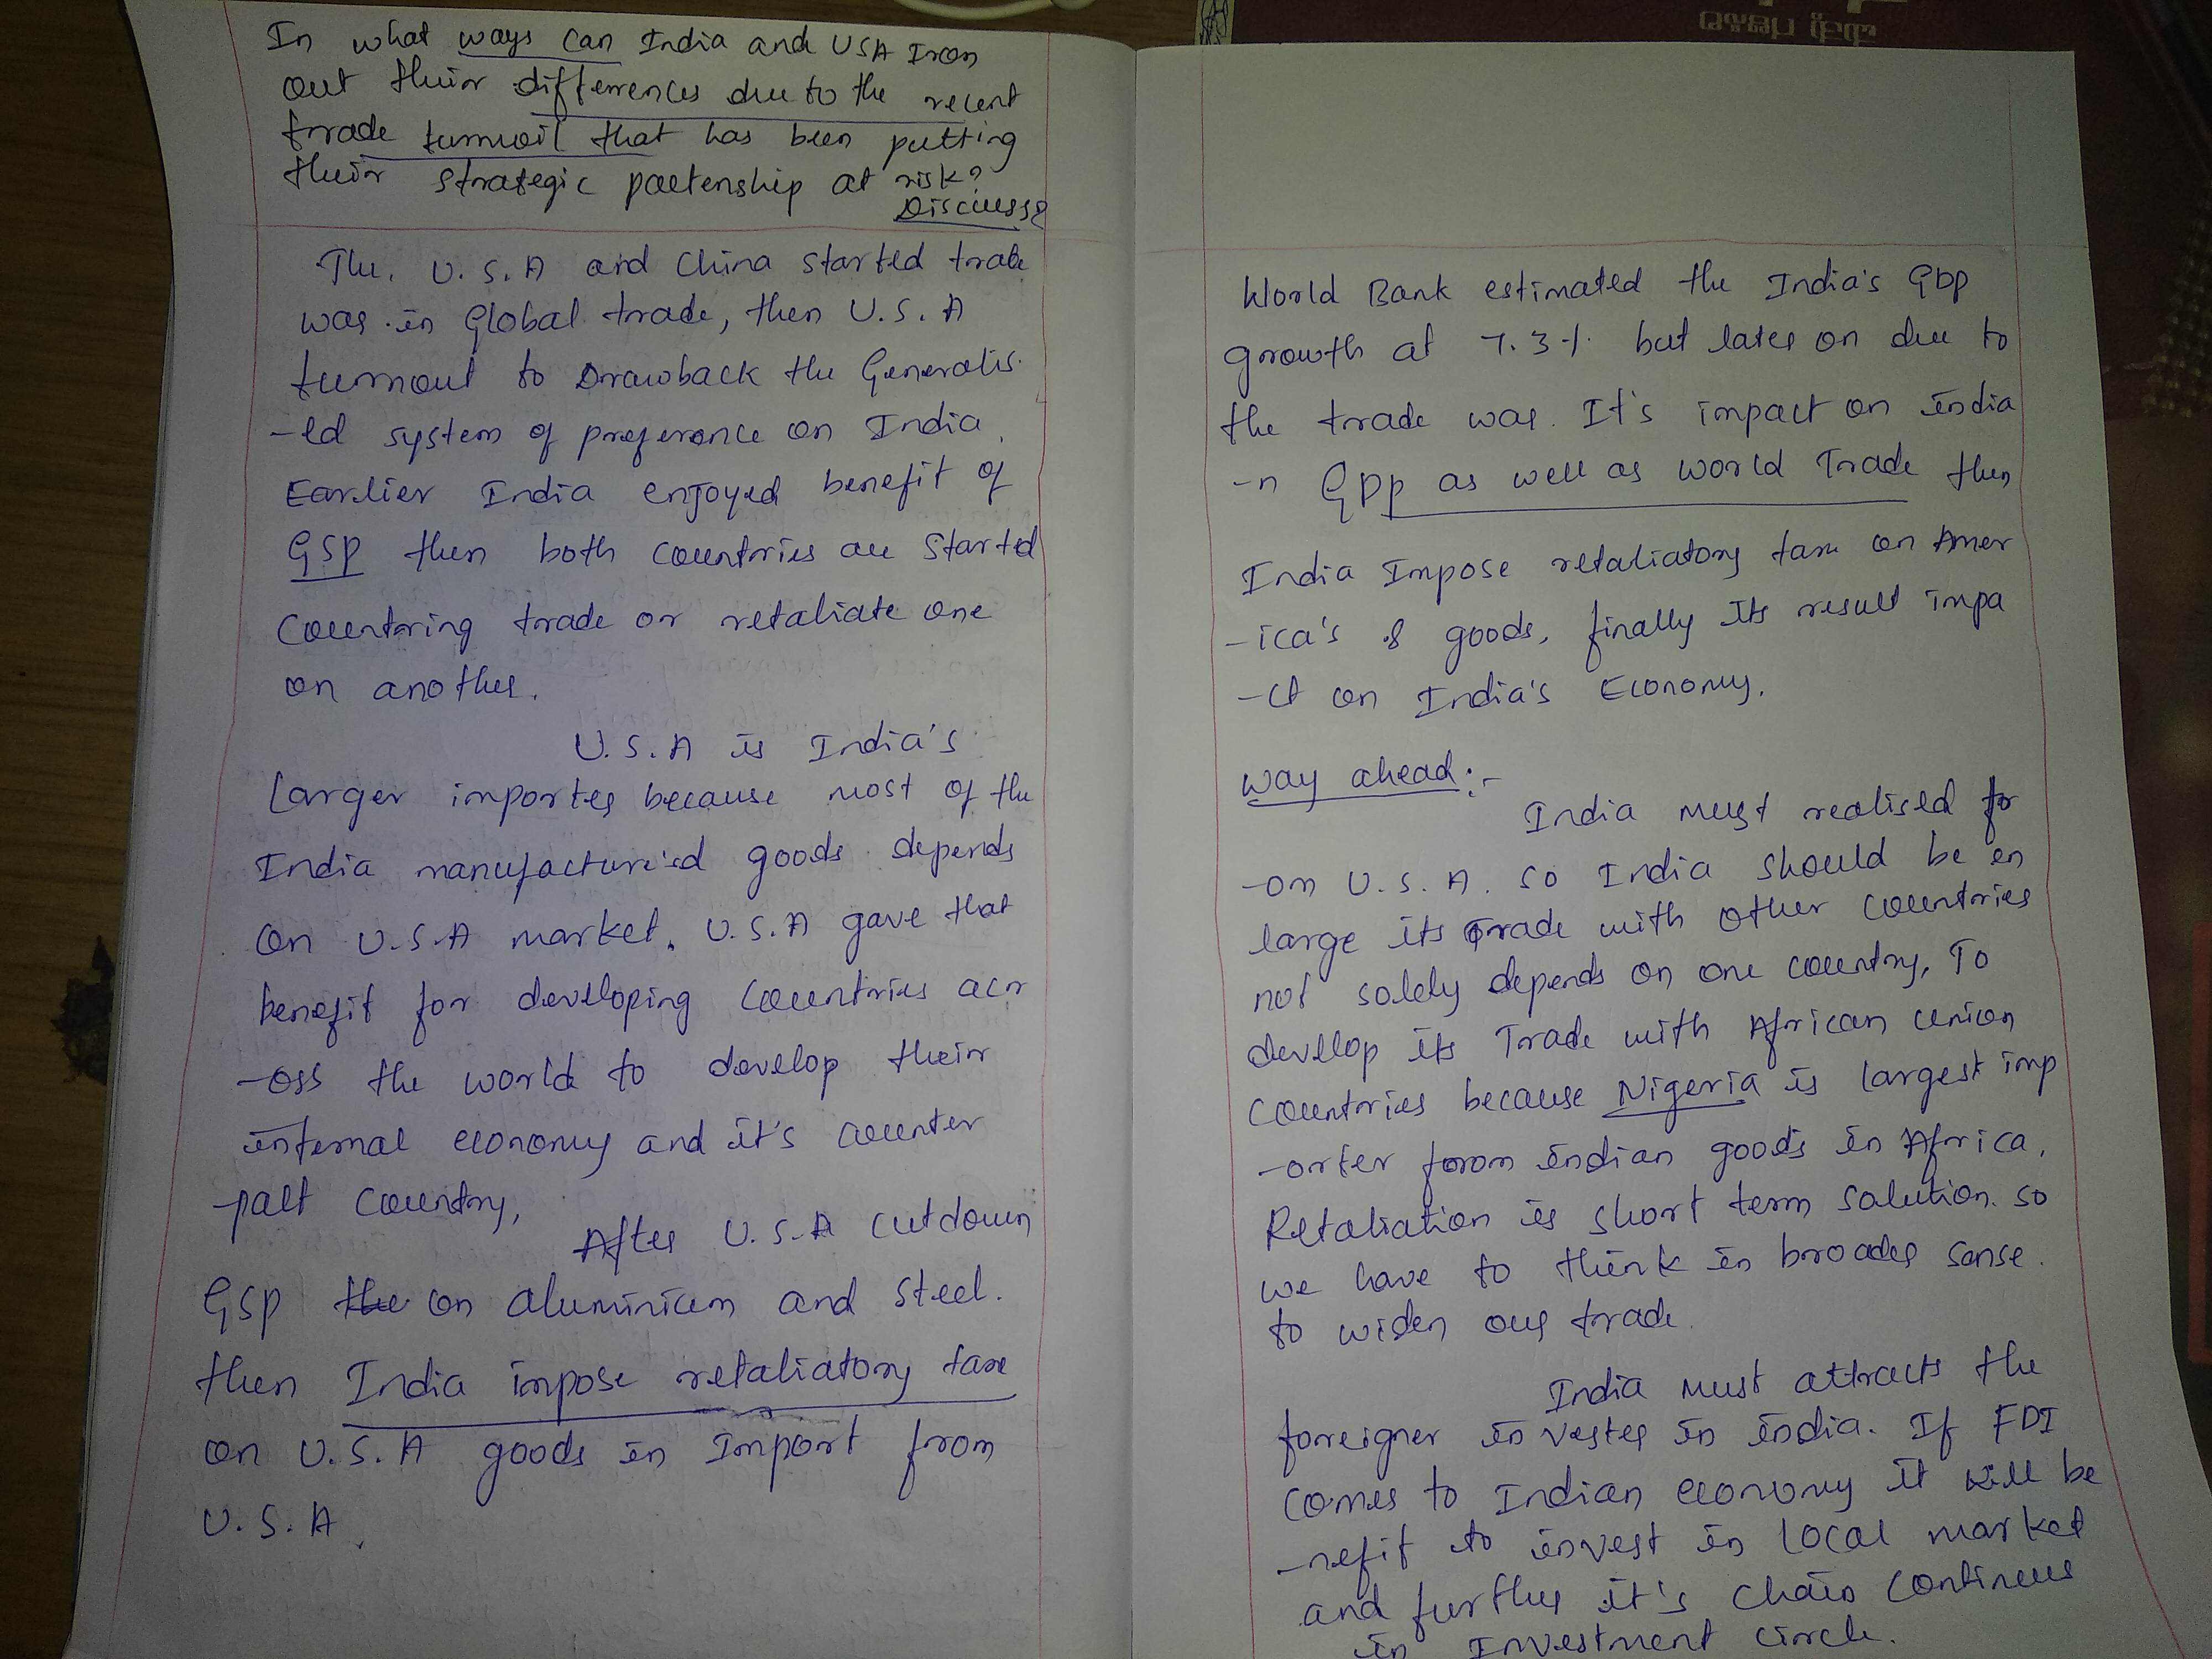 In what ways can India and USA Iron
out their differences due to the recent
trade turmoil that has been putting
their strategic partenship at risk?
Discusss
The. U.S.A and China started trade
war in Global trade, then U.S.A
turnout to Drawback the Generalis-
-ed system of preferance on India.
Earlier India enjoyed benefit of
GSP then both countries are started
countering trade or retaliate one
on another.
U.S.A is India's
Larger importer because most of the
India manufacture'sd goods depends
on U.S.A market. U.S.A gave that
benefit for developing countries acr
-oss the world to develop their
internal economy and it's counter
-part country,
After U.S.A cutdown
GSP the on aluminium and steel.
then India impose retaliatory taxe
on U.S.A goods in Import from
U.S.A.
World Bank estimated the India's GDP
growth at 7.3% but later on due to
the trade war. It's impact on India
-n GDP as well as world Trade then
India Impose retaliatory taxe on Amer
-ica's goods, finally Its result impa
-ct on India's Economy.
way ahead:-
India must realised fr
-om U.S.A. so India should be en
large its Trade with other countries
not solely depends on one country, To
devllop its Trade with African union
countries because Nigeria is largest imp
-orter from indian goods in Africa.
Retaliation is short term solution. so
we have to think in broader sense.
to widen our trade.
India must attracts the
foreigner invester in india. If FDI
comes to Indian economy it will be
-nefit to invest in local market
and further it's chain continues
in Investment circle.
கிருஷ்ண